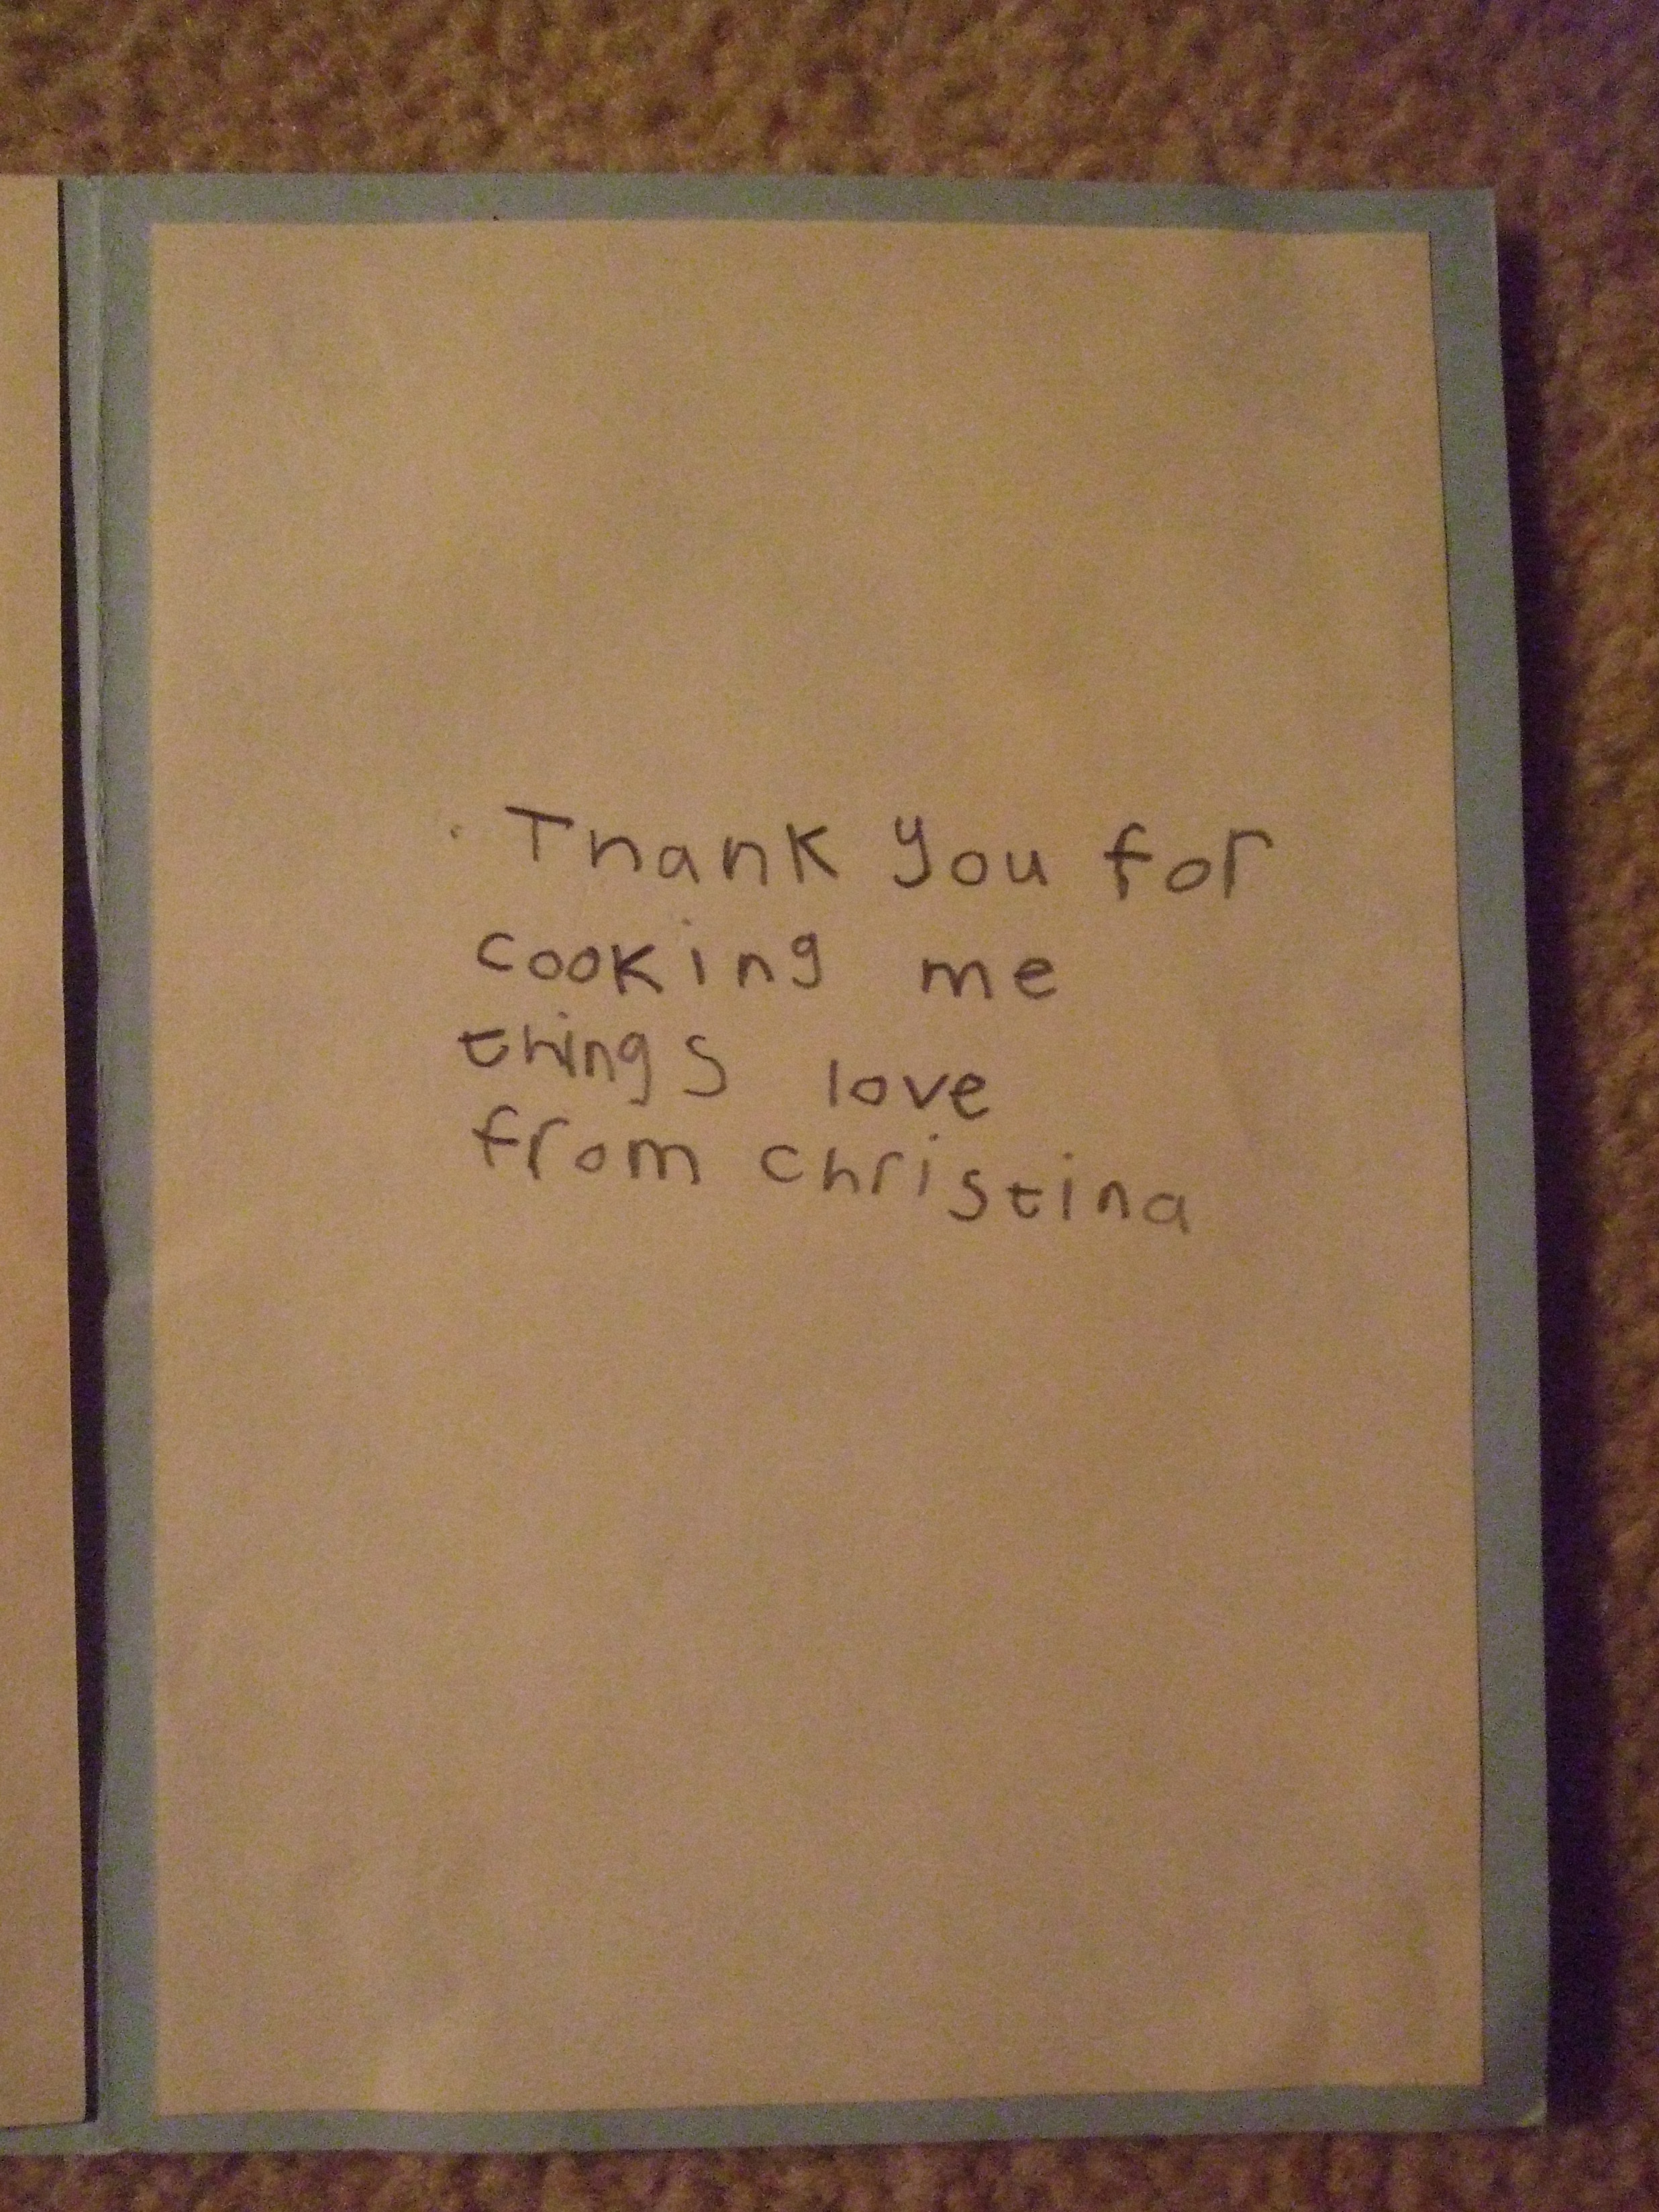 Thank you for
cooking me
things love
from christina